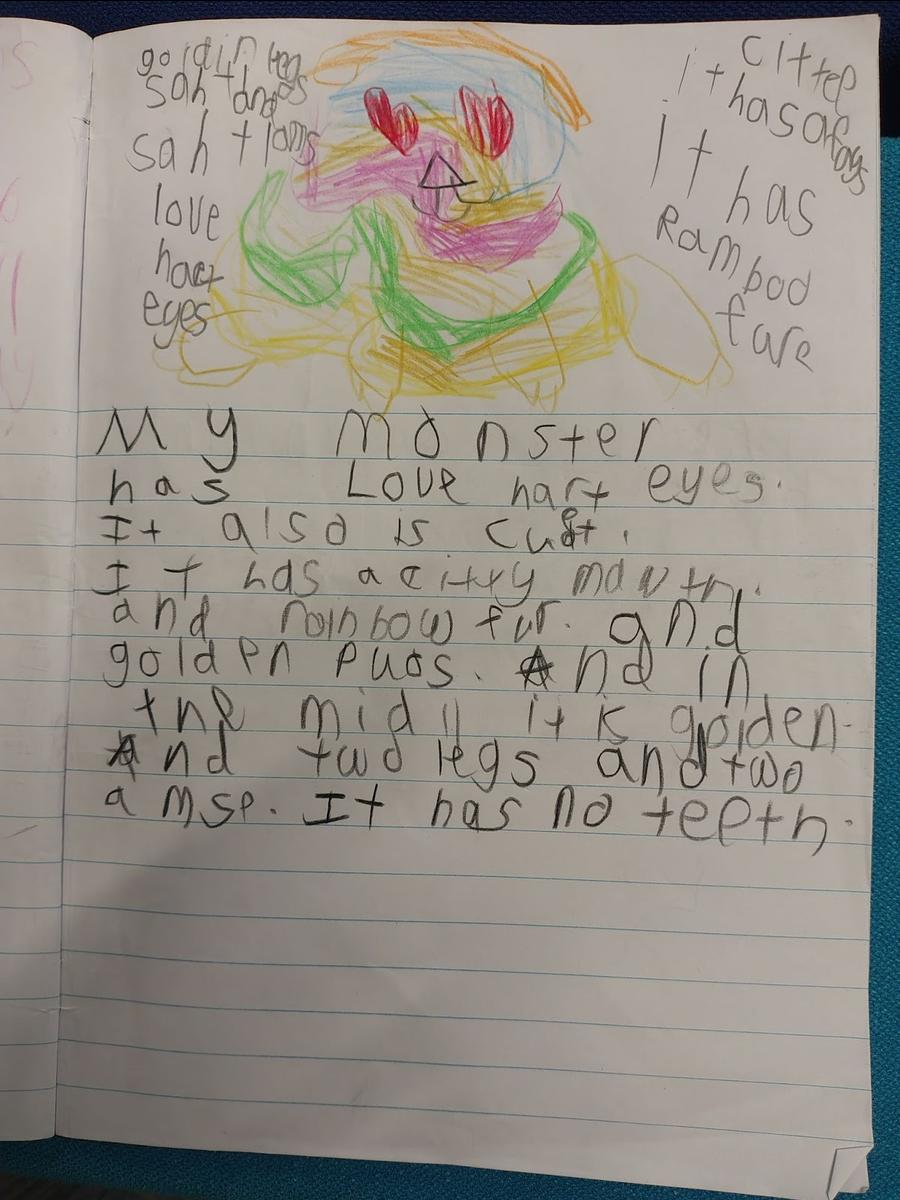 goldin legs
sah tands
sah tlams
love
hart
eyes
cittep
it has a
It has
Rambod
fure
My monster
has Love hart eyes.
It also is cut.
It has a citty mouth.
and roinbow fur. and
golden puos. And in
the midll it is golden.
And two legs and two
amse. It has no teeth.